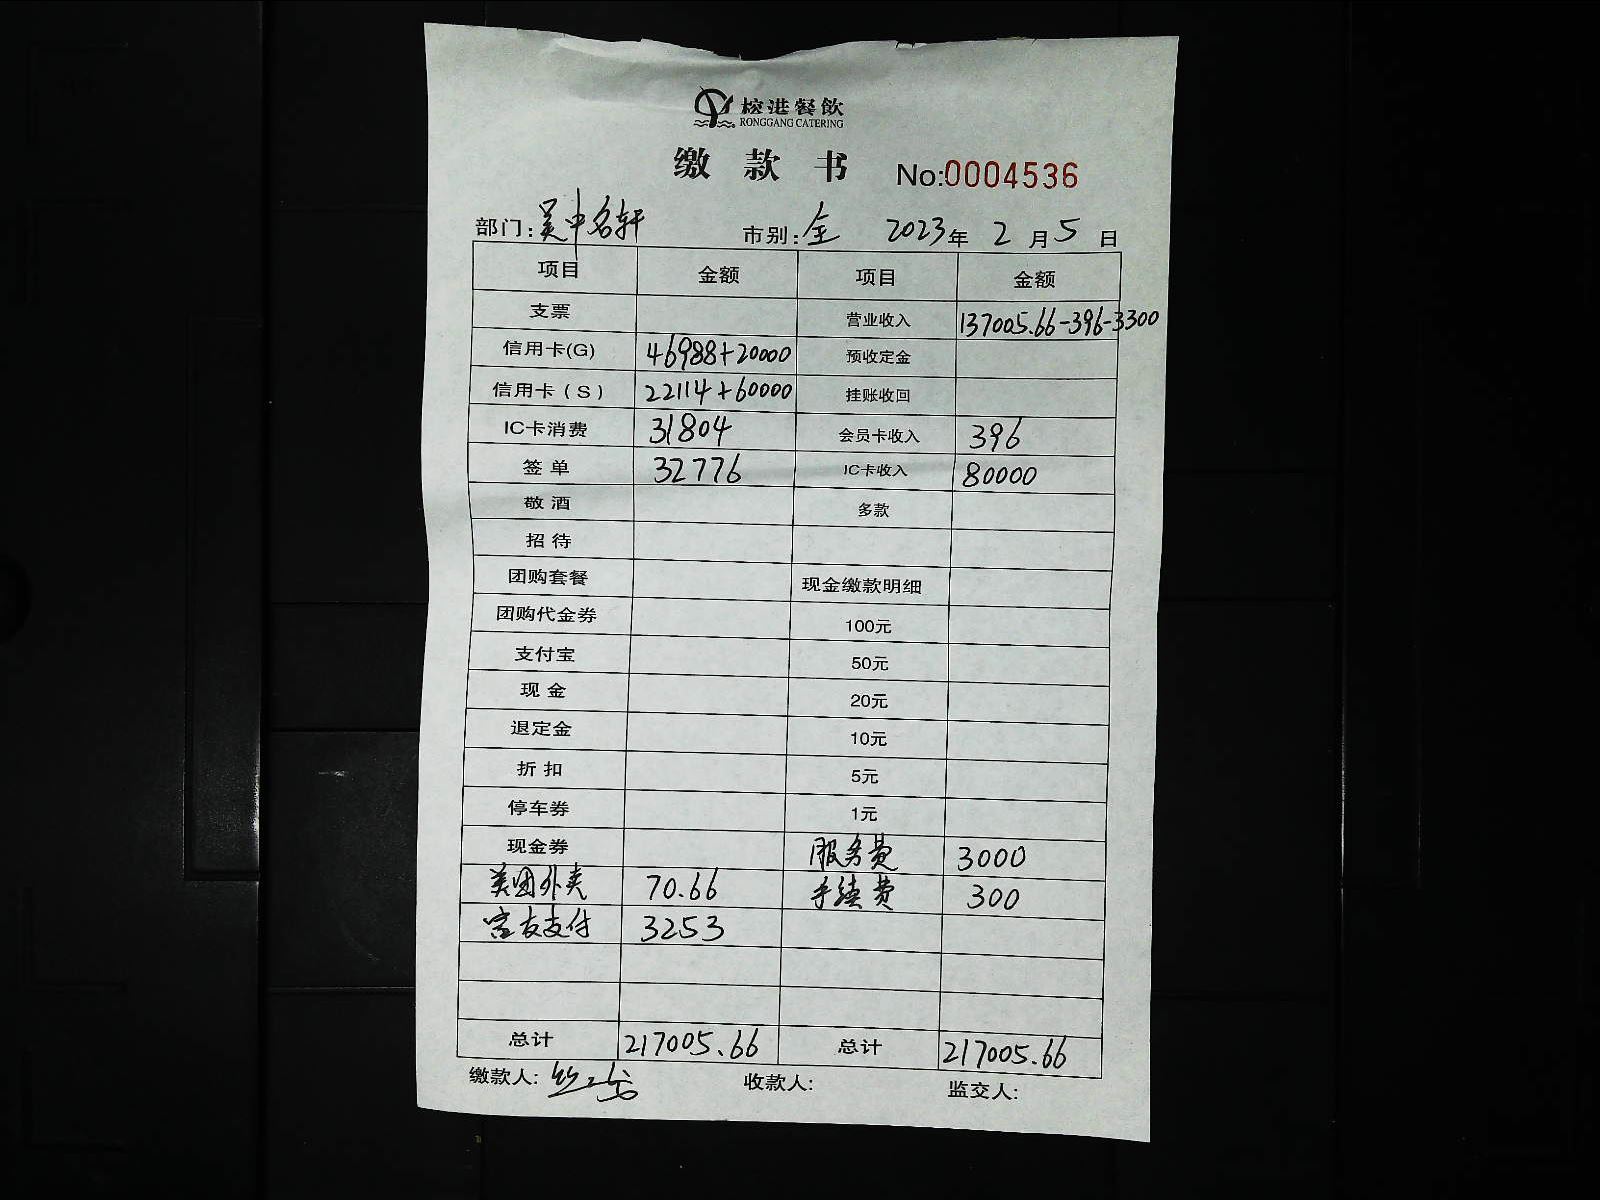 榕港餐飲
RONGGANG CATERING
缴款书 No:0004536
部门:吴中名轩 市别:全 2023年2月5日
项目 金额 项目 金额
支票 营业收入 137005.66-396-3300
信用卡(G) 46988+20000 预收定金
信用卡(S) 22114+60000 挂账收回
IC卡消费 31804 会员卡收入 396
签单 32776 IC卡收入 80000
敬酒 多款
招待
团购套餐 现金缴款明细
团购代金券 100元
支付宝 50元
现金 20元
退定金 10元
折扣 5元
停车券 1元
现金券 服务费 3000
美团外卖 70.66 手续费 300
支付 3253
总计 217005.66 总计 217005.66
缴款人: 收款人: 监交人: